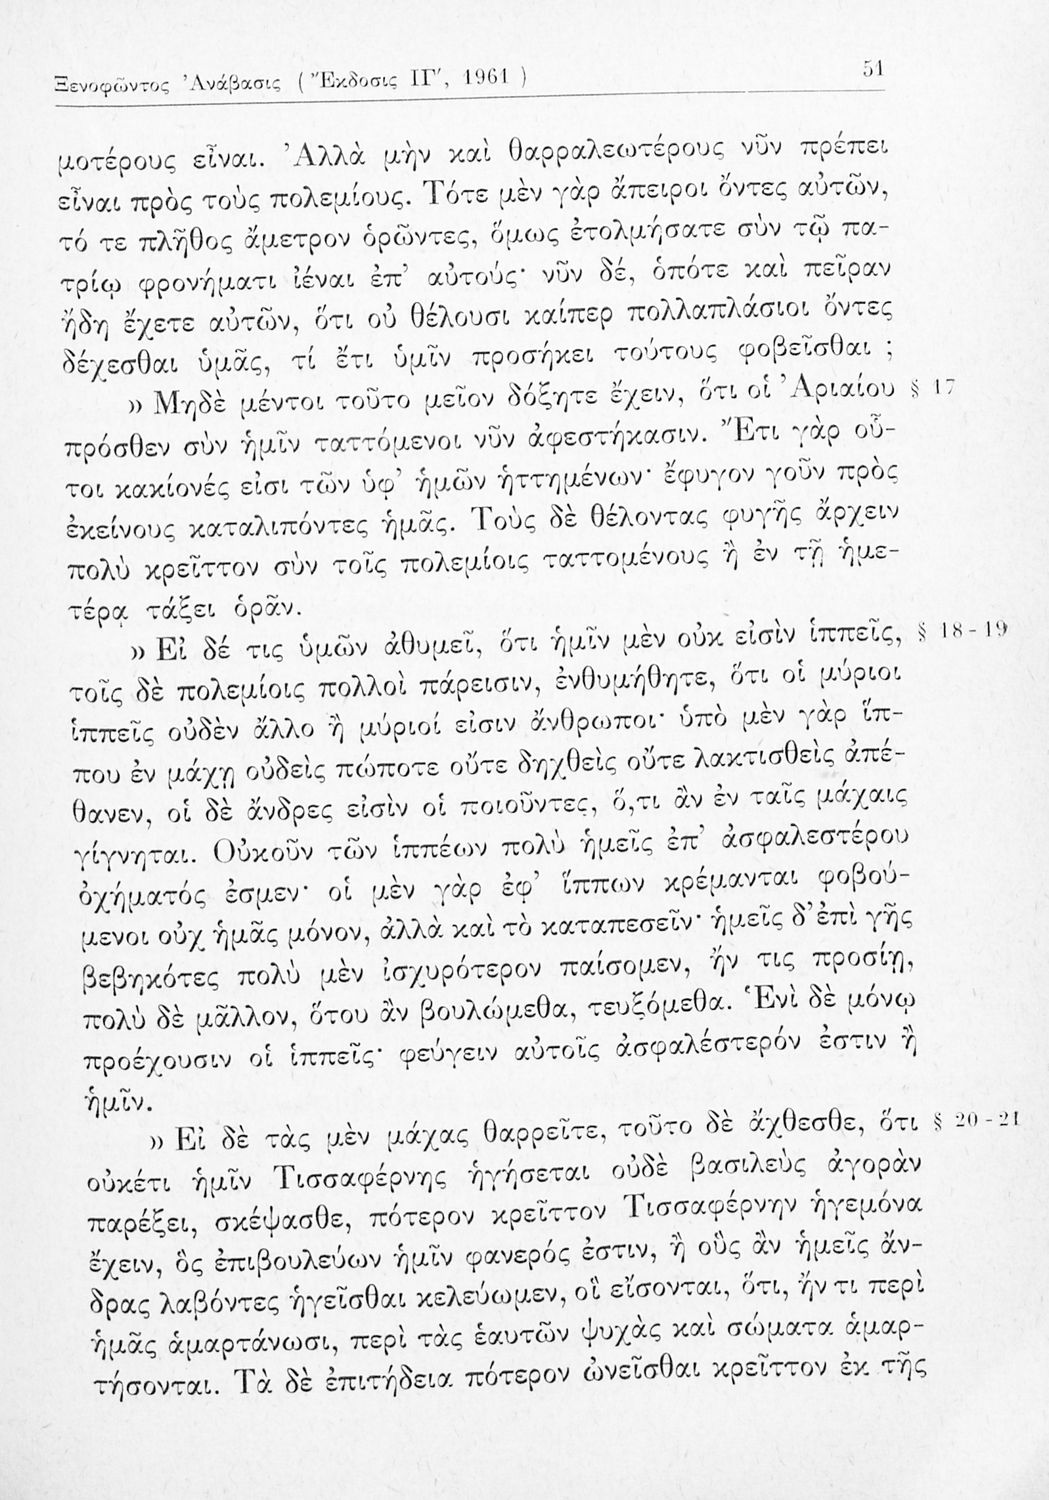 Ξενοφῶντος Ἀνάβασις ( Ἔκδοσις ΙΓ΄, 1961 ) 51
μοτέρους εἶναι. Ἀλλὰ μὴν καὶ θαρραλεωτέρους νῦν πρέπει
εἶναι πρὸς τοὺς πολεμίους. Τότε μὲν γὰρ ἄπειροι ὄντες αὐτῶν,
τό τε πλῆθος ἄμετρον ὁρῶντες, ὅμως ἐτολμήσατε σὺν τῷ πα-
τρίῳ φρονήματι ἰέναι ἐπ’ αὐτούς· νῦν δέ, ὁπότε καὶ πεῖραν
ἤδη ἔχετε αὐτῶν, ὅτι οὐ θέλουσι καίπερ πολλαπλάσιοι ὄντες
δέχεσθαι ὑμᾶς, τί ἔτι ὑμῖν προσήκει τούτους φοβεῖσθαι ;
» Μηδὲ μέντοι τοῦτο μεῖον δόξητε ἔχειν, ὅτι οἱ Ἀριαίου § 17
πρόσθεν σὺν ἡμῖν ταττόμενοι νῦν ἀφεστήκασιν. Ἔτι γὰρ οὗ-
τοι κακίονές εἰσι τῶν ὑφ’ ἡμῶν ἡττημένων· ἔφυγον γοῦν πρὸς
ἐκείνους καταλιπόντες ἡμᾶς. Τοὺς δὲ θέλοντας φυγῆς ἄρχειν
πολὺ κρεῖττον σὺν τοῖς πολεμίοις ταττομένους ἢ ἐν τῇ ἡμε-
τέρᾳ τάξει ὁρᾶν.
» Εἰ δέ τις ὑμῶν ἀθυμεῖ, ὅτι ἡμῖν μὲν οὐκ εἰσὶν ἱππεῖς, § 18-19
τοῖς δὲ πολεμίοις πολλοὶ πάρεισιν, ἐνθυμήθητε, ὅτι οἱ μύριοι
ἱππεῖς οὐδὲν ἄλλο ἢ μύριοί εἰσιν ἄνθρωποι· ὑπὸ μὲν γὰρ ἵπ-
που ἐν μάχῃ οὐδεὶς πώποτε οὔτε δηχθεὶς οὔτε λακτισθεὶς ἀπέ-
θανεν, οἱ δὲ ἄνδρες εἰσὶν οἱ ποιοῦντες, ὅ,τι ἂν ἐν ταῖς μάχαις
γίγνηται. Οὐκοῦν τῶν ἱππέων πολὺ ἡμεῖς ἐπ’ ἀσφαλεστέρου
ὀχήματός ἐσμεν· οἱ μὲν γὰρ ἐφ’ ἵππων κρέμανται φοβού-
μενοι οὐχ ἡμᾶς μόνον, ἀλλὰ καὶ τὸ καταπεσεῖν· ἡμεῖς δ’ ἐπὶ γῆς
βεβηκότες πολὺ μὲν ἰσχυρότερον παίσομεν, ἤν τις προσίῃ,
πολὺ δὲ μᾶλλον, ὅτου ἂν βουλώμεθα, τευξόμεθα. Ἑνὶ δὲ μόνῳ
προέχουσιν οἱ ἱππεῖς· φεύγειν αὐτοῖς ἀσφαλέστερόν ἐστιν ἢ
ἡμῖν.
» Εἰ δὲ τὰς μὲν μάχας θαρρεῖτε, τοῦτο δὲ ἄχθεσθε, ὅτι § 20-21
οὐκέτι ἡμῖν Τισσαφέρνης ἡγήσεται οὐδὲ βασιλεὺς ἀγορὰν
παρέξει, σκέψασθε, πότερον κρεῖττον Τισσαφέρνην ἡγεμόνα
ἔχειν, ὃς ἐπιβουλεύων ἡμῖν φανερός ἐστιν, ἢ οὓς ἂν ἡμεῖς ἄν-
δρας λαβόντες ἡγεῖσθαι κελεύωμεν, οἳ εἴσονται, ὅτι, ἤν τι περὶ
ἡμᾶς ἁμαρτάνωσι, περὶ τὰς ἑαυτῶν ψυχὰς καὶ σώματα ἁμαρ-
τήσονται. Τὰ δὲ ἐπιτήδεια πότερον ὠνεῖσθαι κρεῖττον ἐκ τῆς